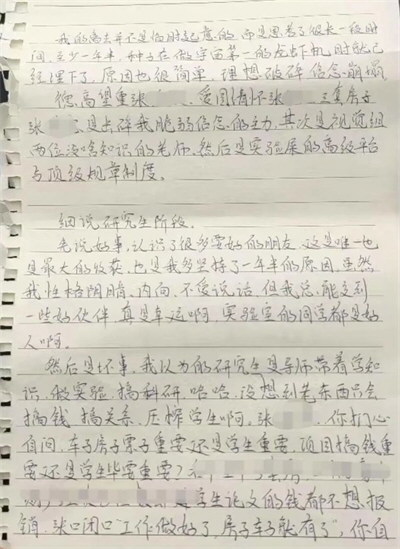 我的离去并不是临时起意的，而是思考了很长一段时
间，至少一年半，种子在做宇宙第一的龙出下机时就已
经埋下了，原因也很简单，理想破碎，信念崩塌
德高望重张 爱国情怀张 三套房子
张 是击碎我脆弱信念的主力，其次是视觉组
两位没啥知识的老师，然后是实验展的高级平台
与顶级规章制度。
细说研究生阶段。
先说好事，认识了很多要好的朋友，这是唯一也
是最大的收获，也是我多坚持了一年半的原因，虽然
我性格阴暗、内向、不爱说话，但我总能交到
一些好伙伴，真是幸运啊，实验室的同学都是好
人啊。
然后是坏事，我以为的研究生是导师带着学知
识，做实验，搞科研，哈哈，没想到老东西只会
搞钱，搞关系，压榨学生啊。张 ，你扪心
自问，车子房子票子重要还是学生重要，项目搞钱重
要还是学生毕业重要？
是学生论文的钱都不想报
销，张口闭口“工作做好了，房子车子就有了”，你自